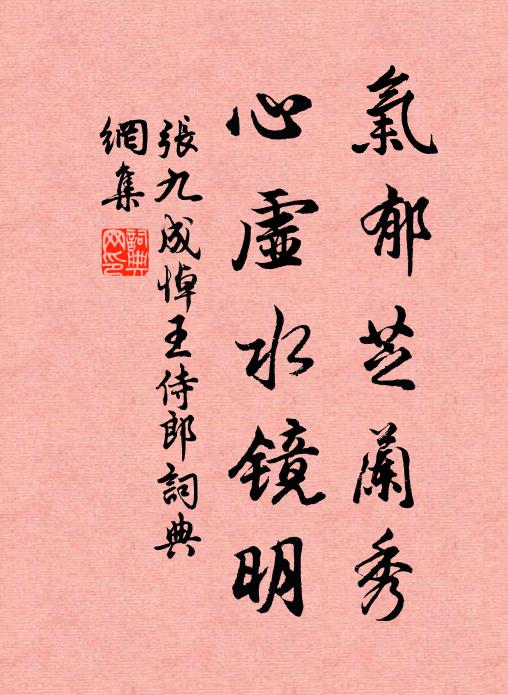 氣郁芝蘭秀
心虛水镜明
張九成悼王侍郎詞典
網集
詞典
网印